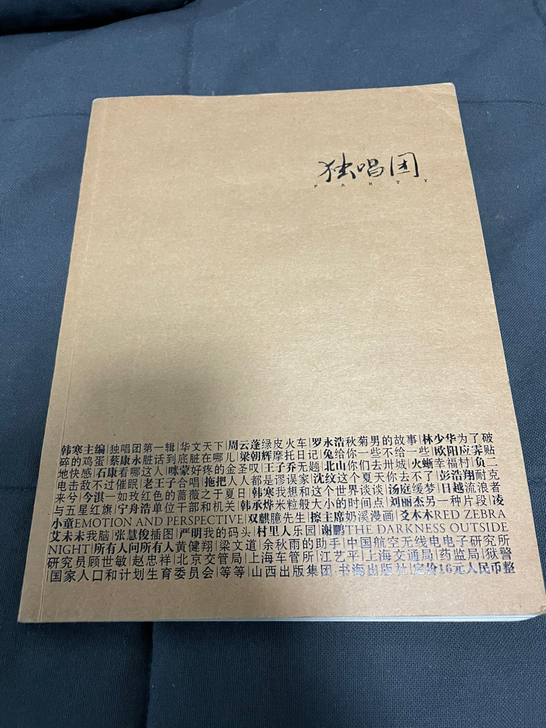 独唱团
PARTY
韩寒主编|独唱团第一辑|华文天下|周云蓬绿皮火车|罗永浩秋菊男的故事|林少华为了破
碎的鸡蛋|蔡康永脏话到底脏在哪儿|梁朝辉摩托日记|兔给你一些不给一些|欧阳应霁贴
地快感|石康看哪这人|咪蒙好疼的金圣叹|王子乔无题|北山你们去卅城|火蜥幸福村|负二
电击敌不过催眠|老王子合唱|拖把人人都是谬误家|沈纹这个夏天你去不了|彭浩翔耐克
来兮|今淇一如玫红色的蔷薇之于夏日|韩寒我想和这个世界谈谈|汤庭缓梦|日越流浪者
与五星红旗|宁舟浩单位干部和机关|韩承烨米粒般大小的时间点|刘丽杰另一种片段|凌
小童EMOTION AND PERSPECTIVE|双麒臆先生|擦主席奶溪漫画|爻木木RED ZEBRA
艾未未我脑|张慧俊插图|严明我的码头|村里人乐园|谢鹏THE DARKNESS OUTSIDE
NIGHT|所有人问所有人|黄健翔|梁文道|余秋雨的助手|中国航空无线电电子研究所
研究员顾世敏|赵忠祥|北京交管局|上海车管所|江艺平|上海交通局|药监局|狱警
国家人口和计划生育委员会|等等|山西出版集团 书海出版社|定价16元人民币整